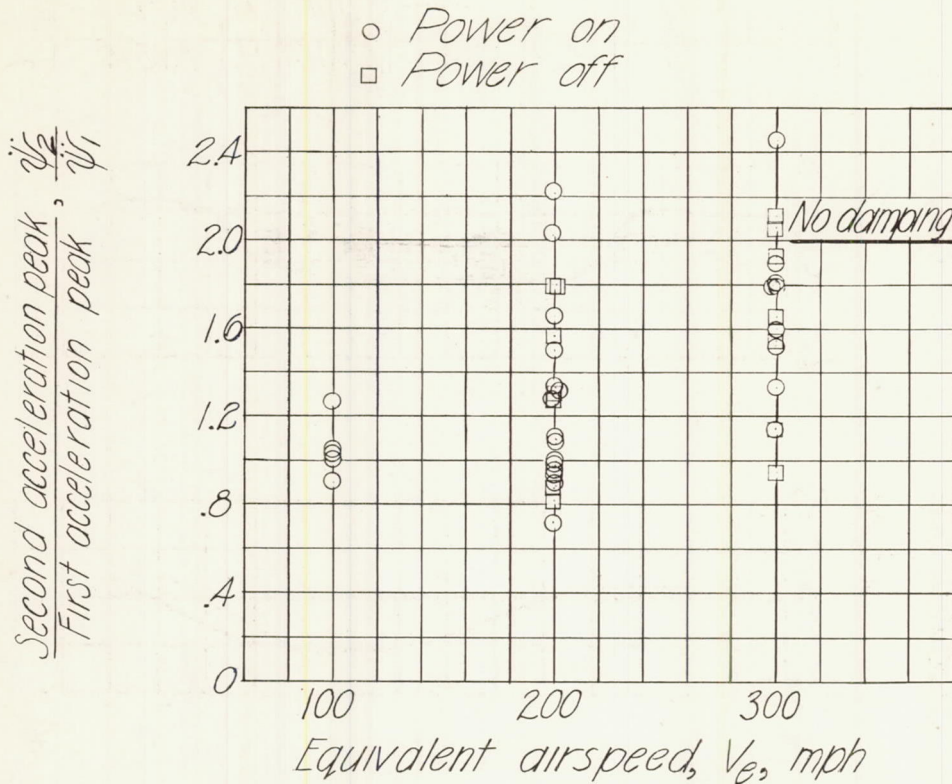 ○ Power on
□ Power off
Second acceleration peak, ψ̈2
First acceleration peak ψ̈1
2.4
2.0
1.6
1.2
.8
.4
0
No damping
100 200 300
Equivalent airspeed, Ve, mph